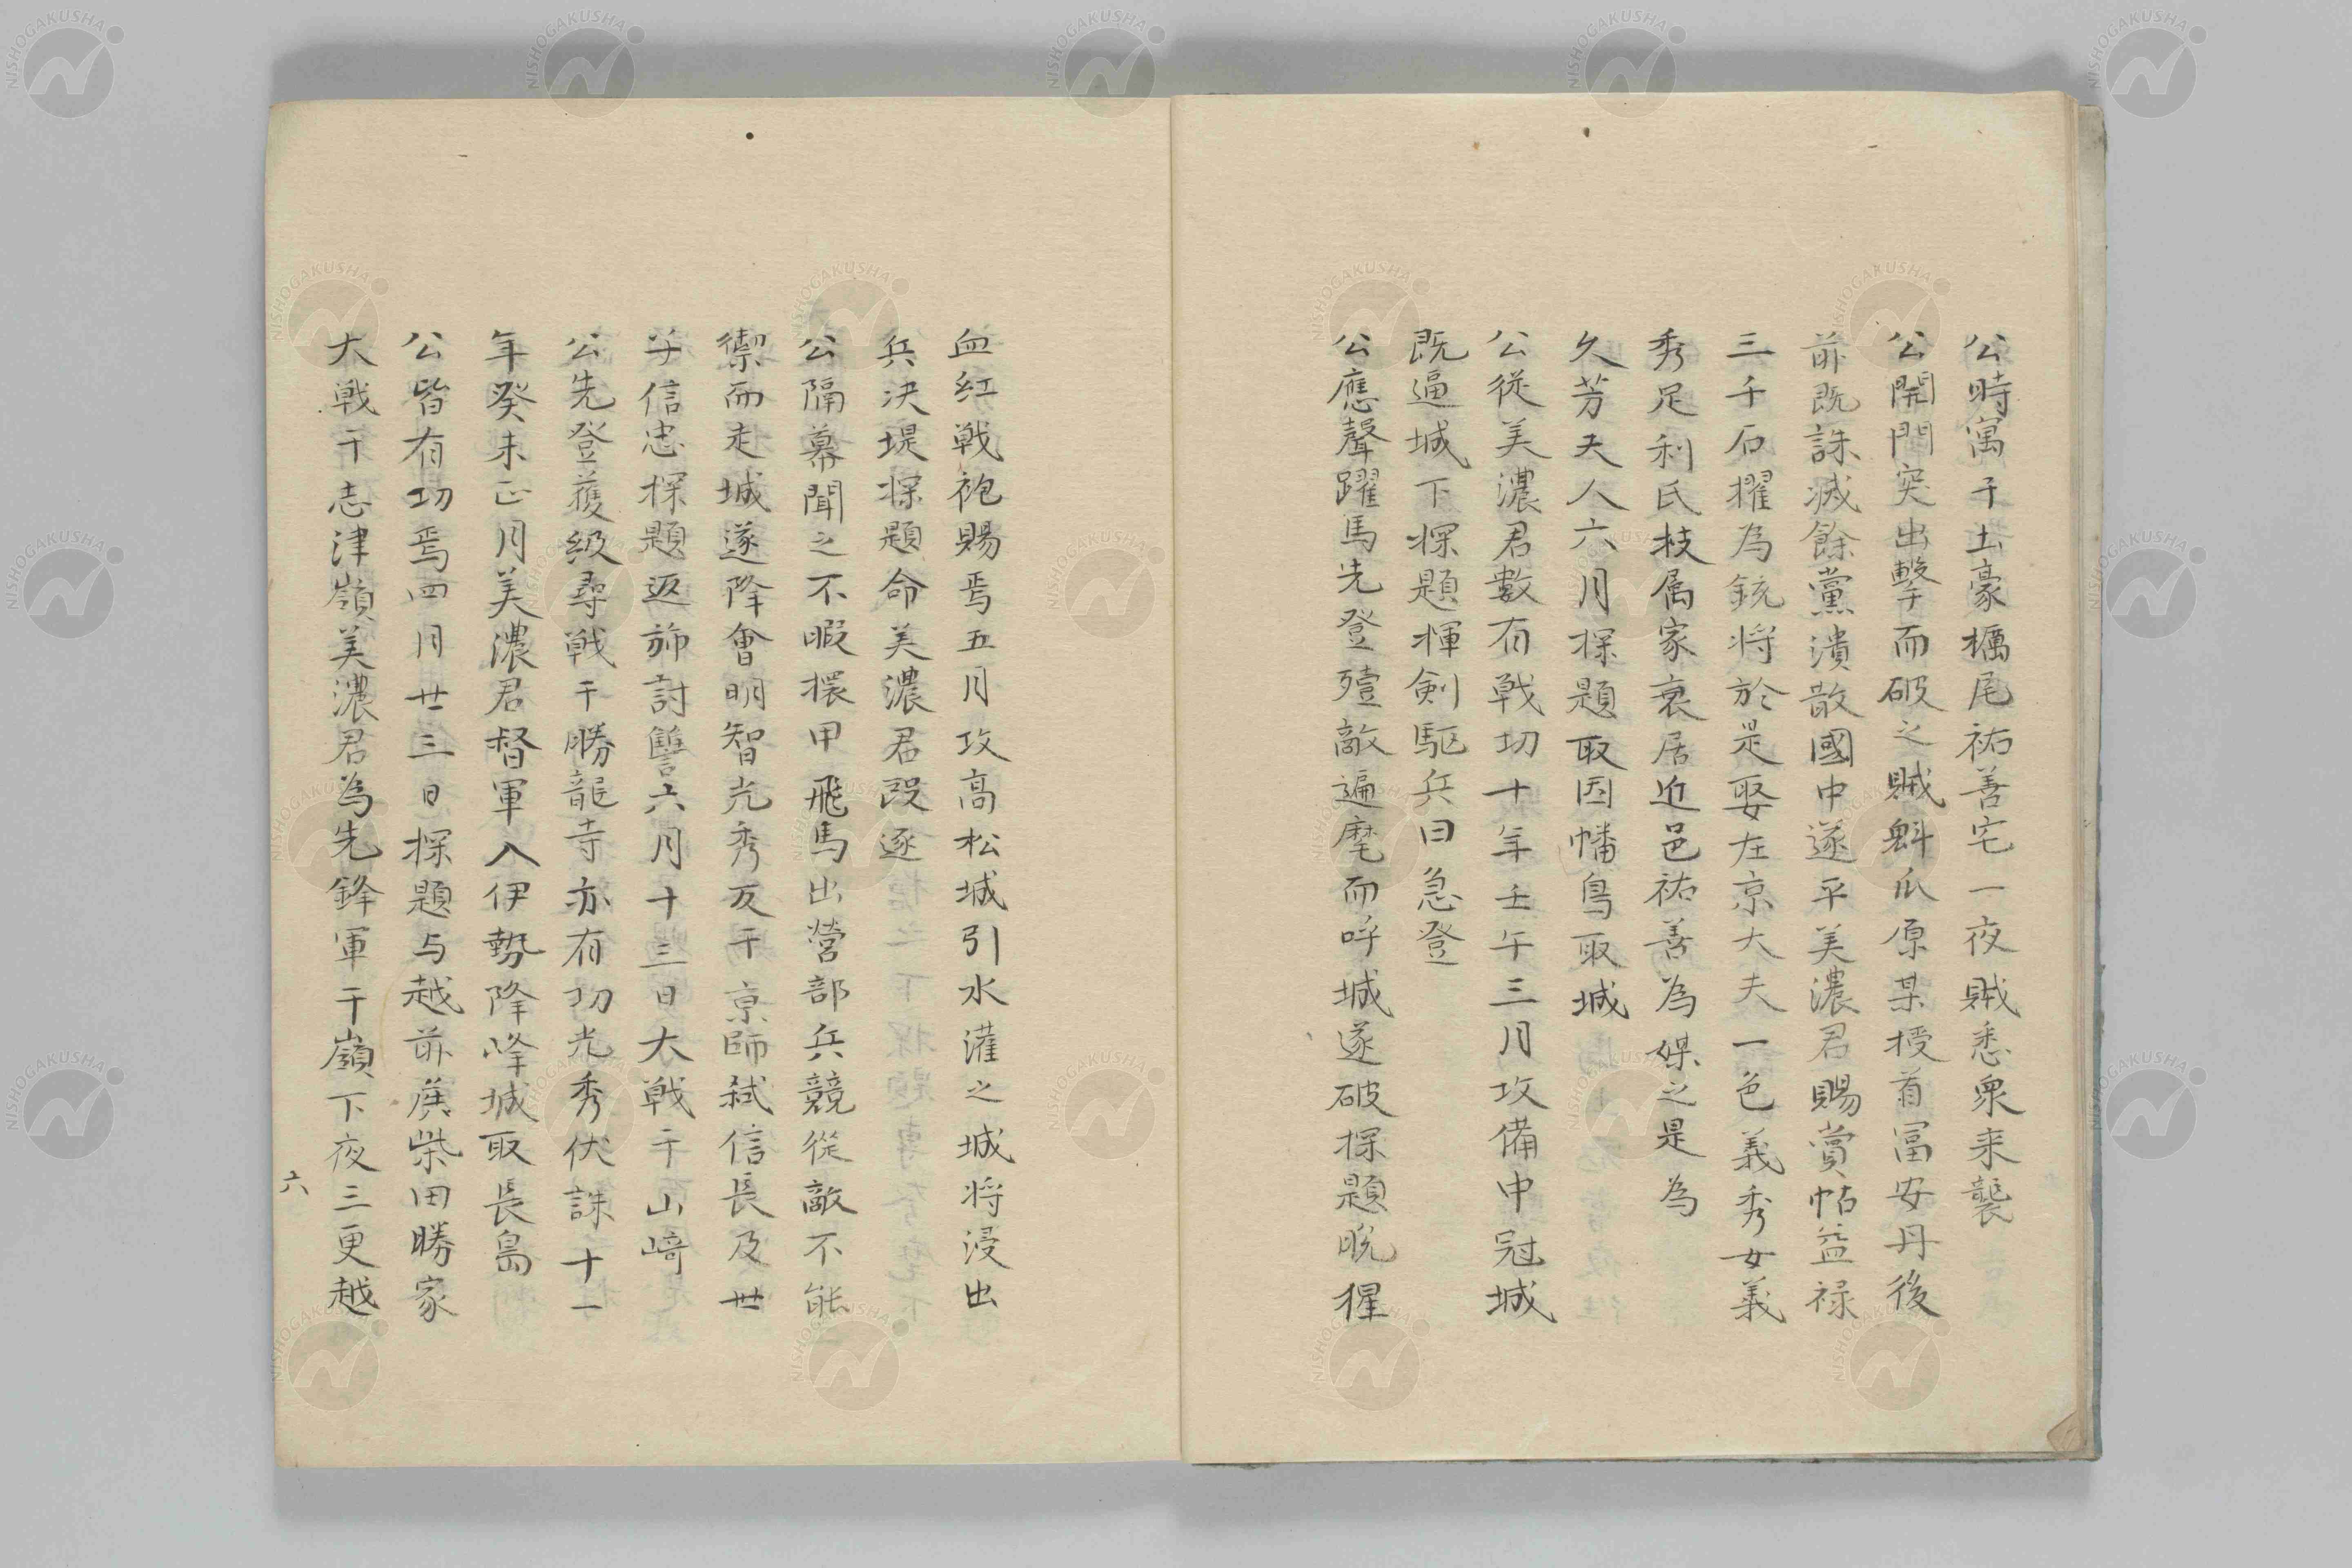 公時寓于土豪櫔尾祐善宅一夜賊悉衆来襲
公開門突出擊而破之賊魁瓜原某授首冨安丹後
前既誅滅餘黨潰散國中遂平美濃君賜賞帖益禄
三千石擢為銃将於是娶左京大夫一色義秀女義
秀足利氏枝属家衰居近邑祐善為媒之是為
久芳夫人六月探題取因幡鳥取城
公従美濃君數有戦功十年壬午三月攻備中冠城
既逼城下探題揮剣駈兵曰急登
公應聲躍馬先登殪敵遍麾而呼城遂破探題脱猩
血紅戦袍賜焉五月攻高松城引水灌之城将浸出
兵決堤探題命美濃君段逐
公隔幕聞之不暇擐甲飛馬出營部兵競従敵不能
禦而走城遂降會明智光秀反于京師弑信長及世
子信忠探題返斾討讐六月十三日大戦于山﨑
公先登獲級尋戦于勝龍寺亦有功光秀伏誅十一
年癸未正月美濃君督軍入伊勢降峰城取長島
公皆有功焉四月廿三日探題与越前矦柴田勝家
大戦于志津嶺美濃君為先鋒軍于嶺下夜三更越
六
NISHOGAKUSHA